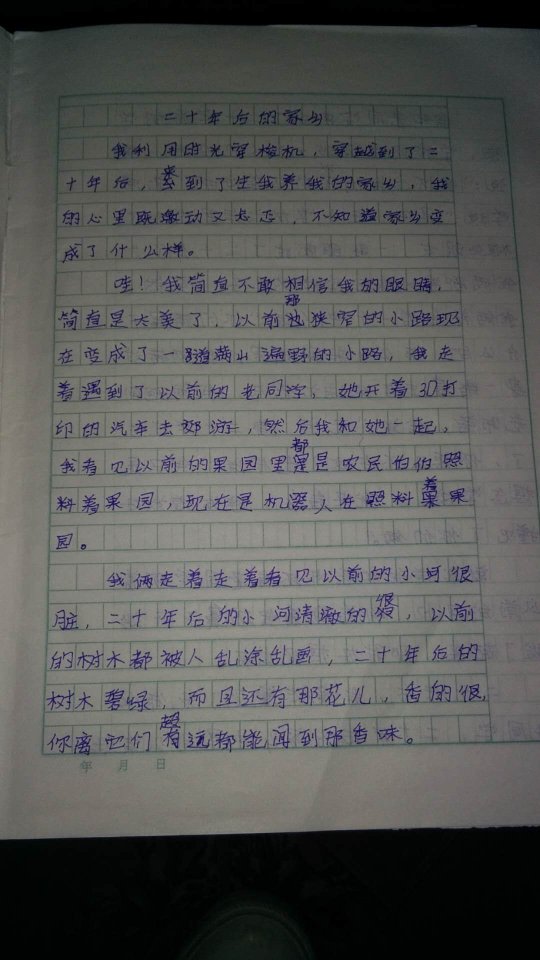 二十年后的家乡
我利用时光穿梭机，穿越到了二
十年后，来到了生我养我的家乡，我
的心里既激动又忐忑，不知道家乡变
成了什么样。
哇！我简直不敢相信我的眼睛，
简直是太美了，以前那狭窄的小路现
在变成了一条满山遍野的小路，我走
着遇到了以前的老同学，她开着3D打
印的汽车去郊游，然后我和她一起，
我看见以前的果园里都是农民伯伯照
料着果园，现在是机器人在照料着果
园。
我俩走着走着看见以前的小河很
脏，二十年后的小河清澈的很，以前
的树木都被人乱涂乱画，二十年后的
树木碧绿，而且还有那花儿，香的很，
你离它们超远都能闻到那香味。
年 月 日